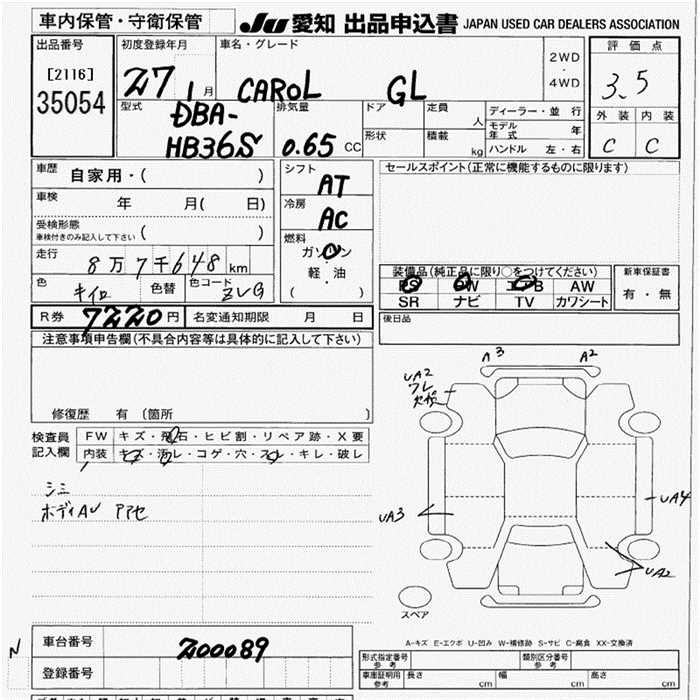 車内保管・守衛保管
JU 愛知 出品申込書 JAPAN USED CAR DEALERS ASSOCIATION
出品番号
[2116]
35054
初度登録年月
27 1月
車名・グレード
CAROL GL
2WD
・
4WD
評価点
3.5
型式
DBA-
HB36S
排気量
0.65 CC
ドア
形状
定員
人
積載
kg
ディーラー・並行
モデル年式 年
ハンドル 左・右
外装 内装
C C
車歴 自家用・( )
車検 年 月( 日)
受検形態
車検付きのみ記入して下さい ( )
走行 8万7千648km
色 キイロ 色替 色コード ZVG
シフト
AT
冷房
AC
燃料
ガソリン
・
軽・油
( )
セールスポイント(正常に機能するものに限ります)
装備品(純正品に限り○をつけてください)
PS PW エアB AW
SR ナビ TV カワシート
新車保証書
有・無
R券 7220円 名変通知期限 月 日
後日品
注意事項申告欄(不具合内容等は具体的に記入して下さい)
修復歴 有 〔箇所 〕
検査員
記入欄
FW キズ・飛石・ヒビ割・リペア跡・X要
内装 キズ・汚レ・コゲ・穴・スレ・キレ・破レ
シミ
ボディAU アアセ
A3
A2
UA2
ワレ
UA3
UA4
UA2
スペア
A-キズ E-エクボ U-凹み W-補修跡 S-サビ C-腐食 XX-交換済
N
車台番号 200089
登録番号
形式指定番号
参考
類別区分番号
参考
車庫証明用
参考
長さ cm 幅 cm 高さ cm